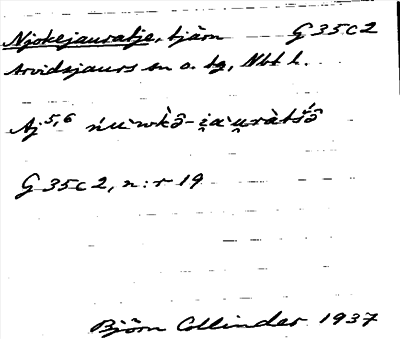 Njokejauratje, tjärn G 35 c 2
Arvidsjaurs sn o. tg, Nbt l.
Aj 5,6
G 35 c 2, n:r 19
Björn Collinder 1937